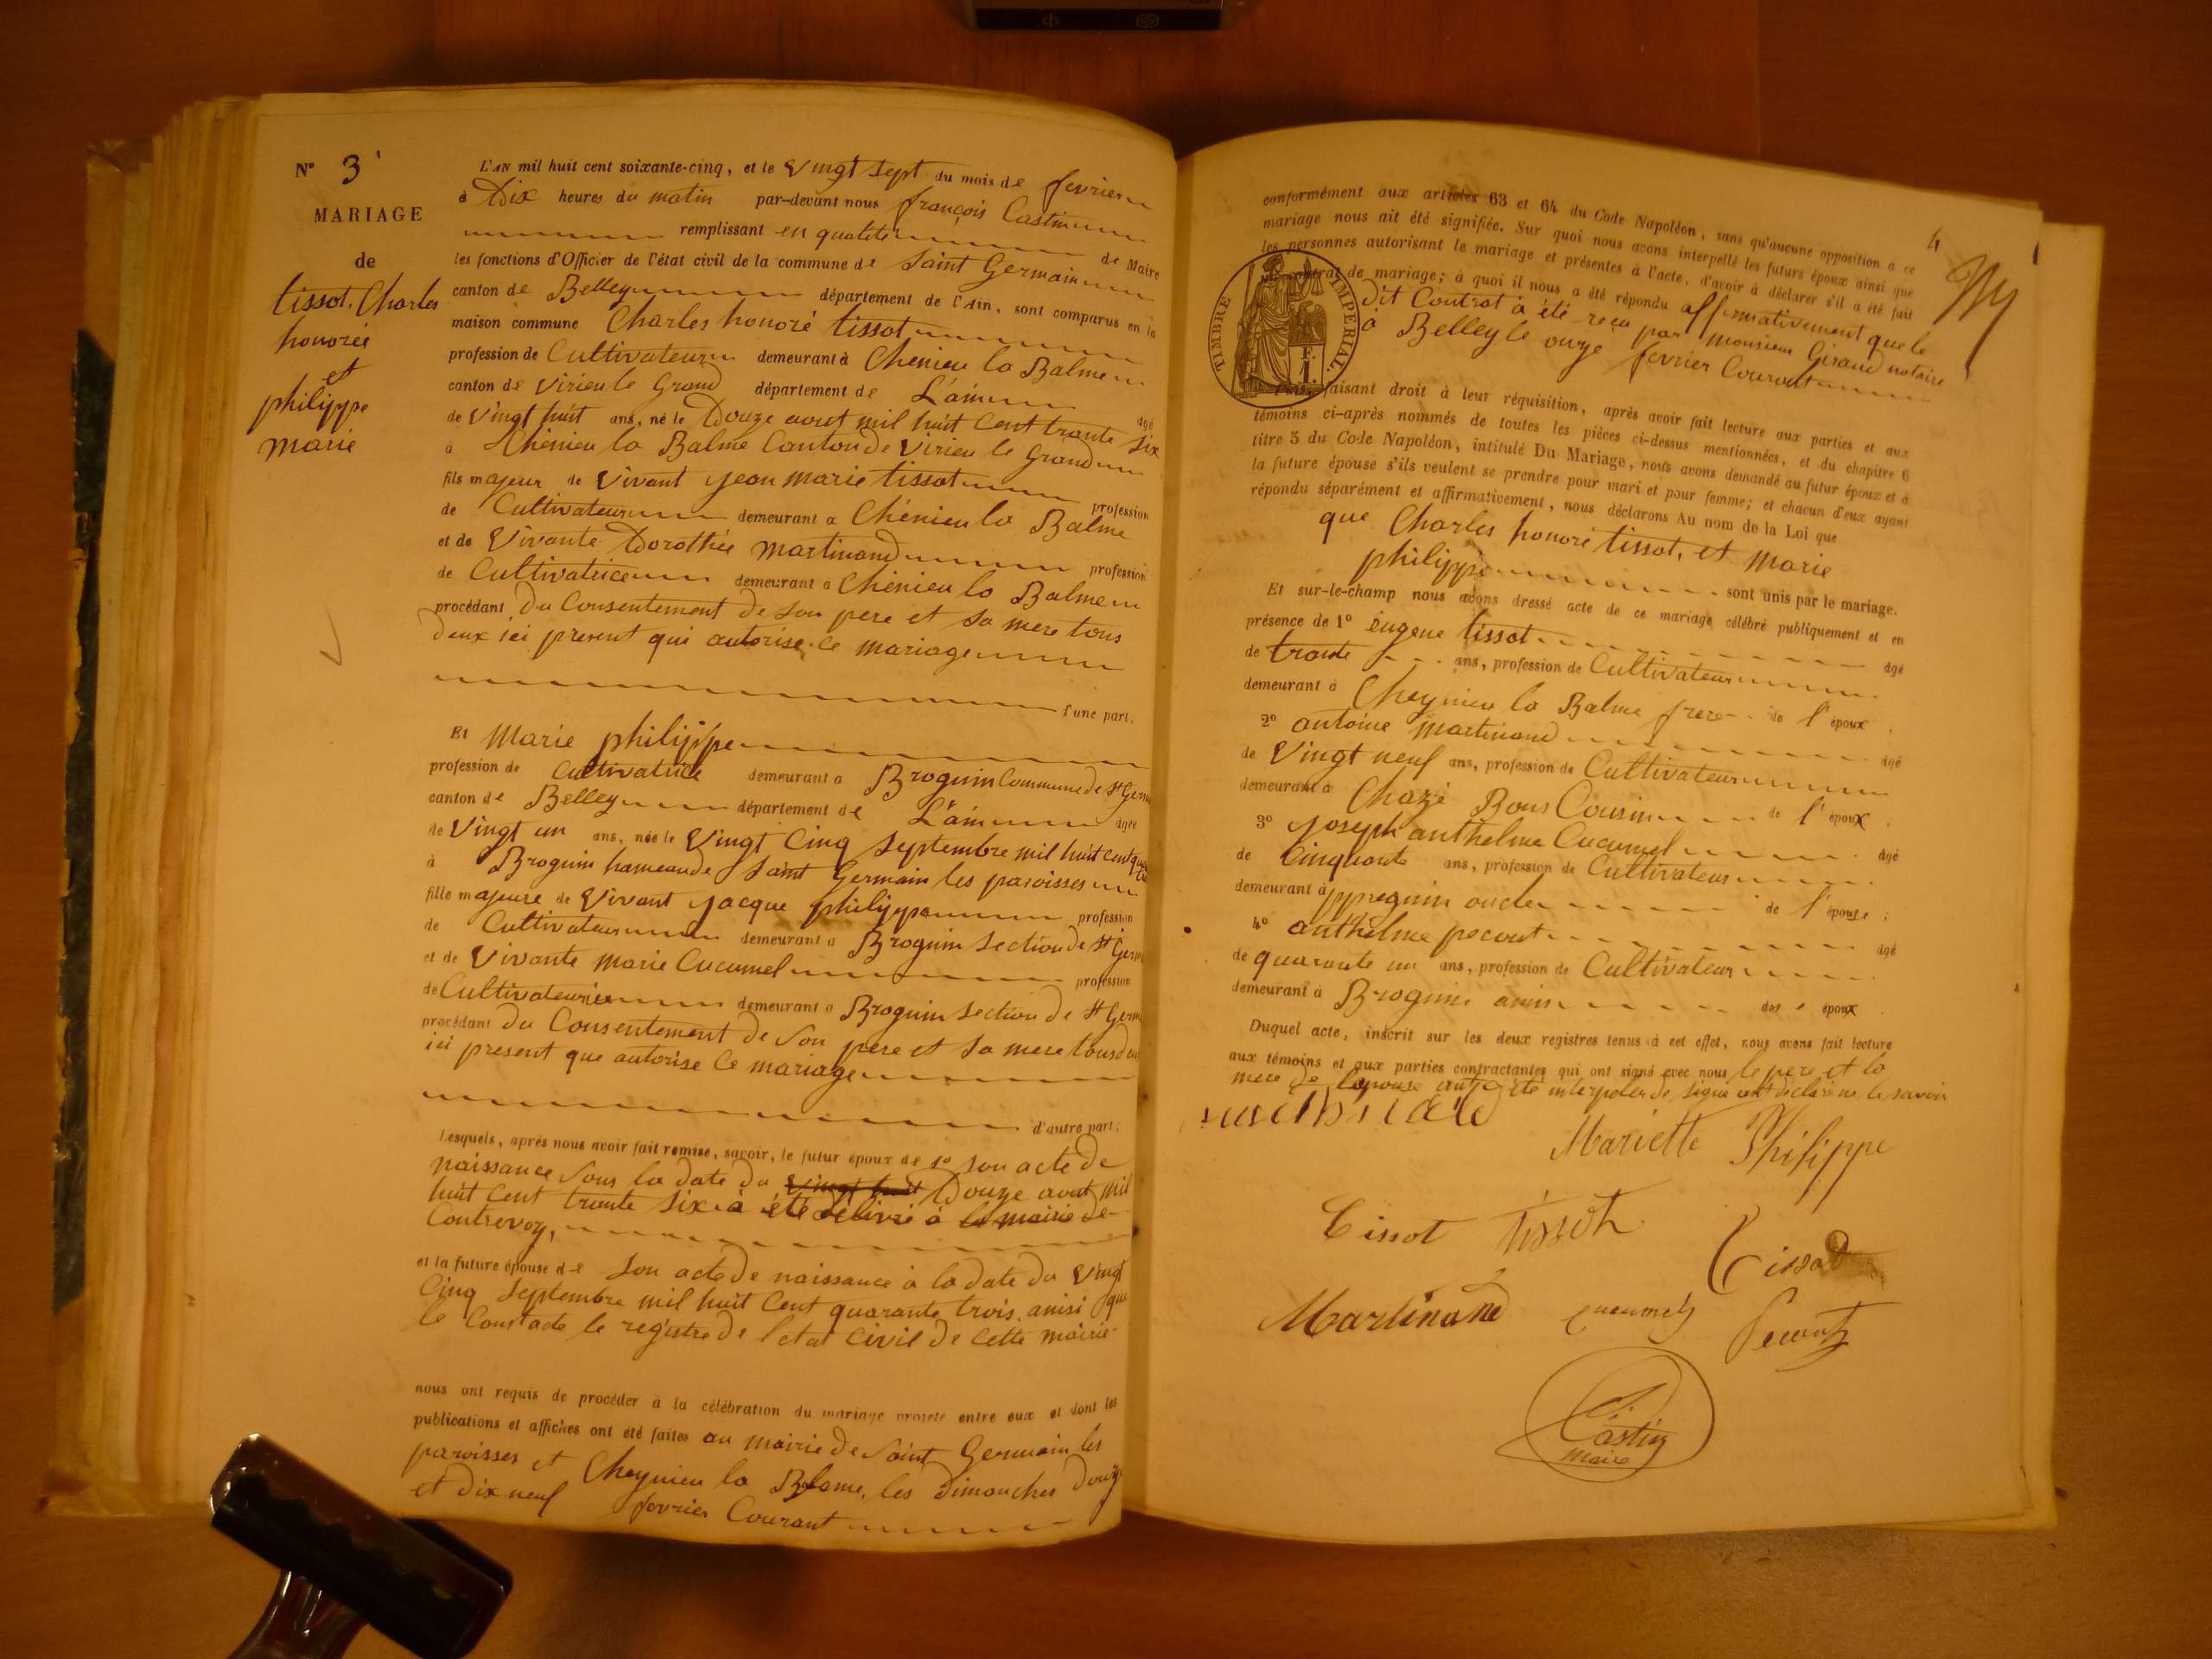 N° 3
MARIAGE
de
tissot, Charles
honoréé
et
philippe
marie
L'AN mil huit cent soixante-cinq, et le Vingt sept du mois de fevrier
à Dix heures du matin par-devant nous françois Castin
remplissant en qualité de Maire
les fonctions d'Officier de l'état civil de la commune de Saint Germain
canton de Belley département de l'Ain, sont comparus en la
maison commune Charles honoré tissot
profession de Cultivateur demeurant à Chénieu la Balme
canton de Virieu le Grand département de L'ain âgé
de Vingt huit ans, né le Douze aout mil huit Cent trante Six
à Chénieu la Balme Canton de Virieu le Grand
fils majeur de Vivant jean marie tissot profession
de Cultivateur demeurant a Chénieu la Balme
et de Vivante Dorothée martinand profession
de Cultivatrice demeurant a Chénieu la Balme
procédant du Consentement de son pere et sa mere tous
deux ici present qui autorise ce mariage
d'une part.
Et Marie philippe
profession de Cultivatrice demeurant a Broguin Commune de St Germ
canton de Belley département de L'ain âgée
de Vingt un ans, née le Vingt Cinq Septembre mil huit cent
à Broguin hameau de Saint Germain les paroisses
fille majeure de Vivant jacque philippe profession
de Cultivateur demeurant a Broguin Section de St Germ
et de Vivante marie Cucumel profession
de demeurant a Broguin Section de St Germ
procédant du Consentement de Son pere et Sa mere tous
ici present que autorise Ce mariage
d'autre part.
Lesquels, après nous avoir fait remise, savoir, le futur époux de 1° son acte de
naissance Sous la date du vingt huit Douze aout mil
huit Cent trante Six à été délivré à la mairie de
Contrevoz,
et la future épouse de Son acte de naissance à la date du Vingt
Cinq Septembre mil huit Cent quarante trois, anisi que
le Constade le registre de l'etat Civil de Cette mairie
nous ont requis de procéder à la célébration du mariage projeté entre eux et dont les
publications et affiches ont été faites au mairie de Saint Germain les
paroisses et Cheynieu la Balame, les dimanches Douze
et dix neuf fevrier Courant
4
conformément aux articles 63 et 64 du Code Napoléon, sans qu'aucune opposition a ce
mariage nous ait été signifiée. Sur quoi nous avons interpellé les futurs époux ainsi que
les personnes autorisant le mariage et présentes à l'acte, d'avoir à déclarer s'il a été fait
contrat de mariage; à quoi il nous a été répondu affirmativement que le
TIMBRE IMPERIAL.
dit Contrat à été reçu par monsieur Giraud notaire
à Belley le onze fevrier Courant
faisant droit à leur réquisition, après avoir fait lecture aux parties et aux
témoins ci-après nommés de toutes les pièces ci-dessus mentionnées, et du chapitre 6
titre 5 du Code Napoléon, intitulé Du Mariage, nous avons demandé au futur époux et à
la future épouse s'ils veulent se prendre pour mari et pour femme; et chacun d'eux ayant
répondu séparément et affirmativement, nous déclarons Au nom de la Loi que
que Charles honoré tissot, et Marie
philippe sont unis par le mariage.
Et sur-le-champ nous avons dressé acte de ce mariage célébré publiquement et en
présence de 1° Eugene tissot âgé
de trante ans, profession de Cultivateur
demeurant à Cheynieu la Balme frere de l' époux
2° antoine Martinand âgé
de Vingt neuf ans, profession de Cultivateur
demeurant à Chazé Bons Cousin de l' époux
3° joseph anthelme Cucumel âgé
de Cinquante ans, profession de Cultivateur
demeurant à oncle de l' épouse;
4° anthelme pecout âgé
de quarante un ans, profession de Cultivateur
demeurant à Broguin amis des époux
Duquel acte, inscrit sur les deux registres tenus à cet effet, nous avons fait lecture
aux témoins et aux parties contractantes qui ont signé avec nous le pere et la
mere de lepouse été interpeler de signe ont declaré ne le savoir
Mariette Philippe
Tissot Tissot
Tissot
Martinand
Castin
Maire